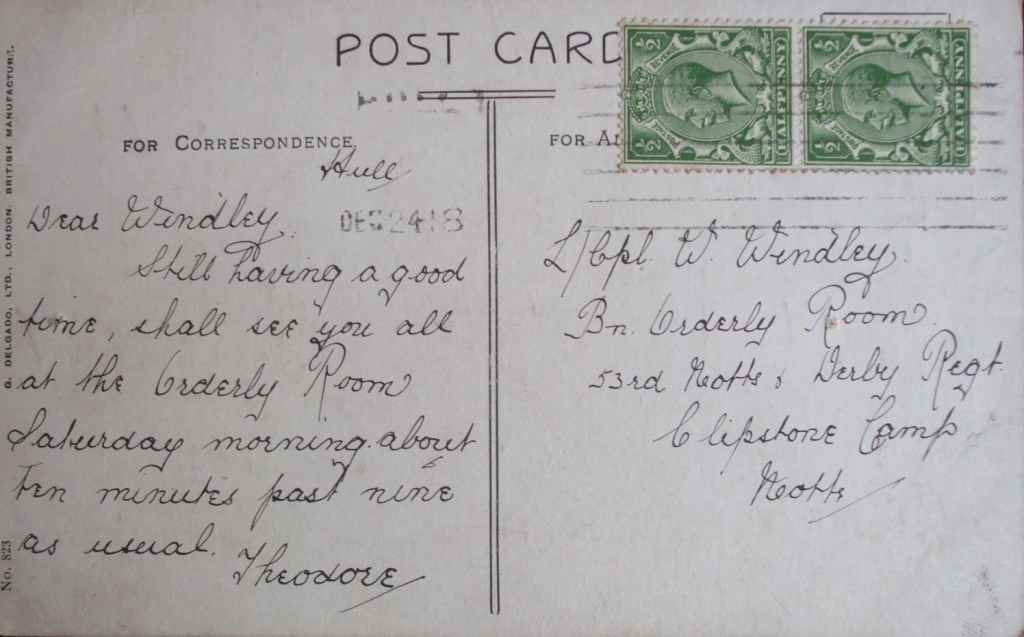 POST CARD
FOR CORRESPONDENCE
Hull
DEC 24 18
Dear Windley.
Still having a good
time, shall see you all
at the Orderly Room
Saturday morning about
ten minutes past nine
as usual.
Theodore
L/Cpl. W. Windley.
Bn. Orderly Room.
53rd Notts & Derby Regt.
Clipstone Camp
Notts
FOR
½ HALFPENNY
½ HALFPENNY
G. DELGADO, LTD., LONDON. BRITISH MANUFACTURE.
No. 823